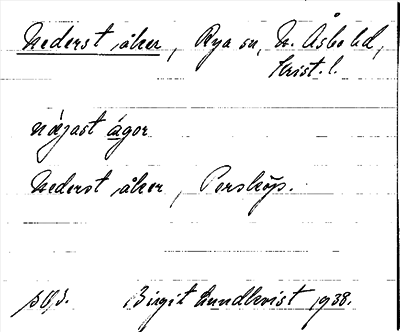 Nederst åker, Rya sn, N. Åsbo hd,
Krist. l.
nęjast ágor
Nederst åker, Perstorp.
Birgit Lundkvist 1938.